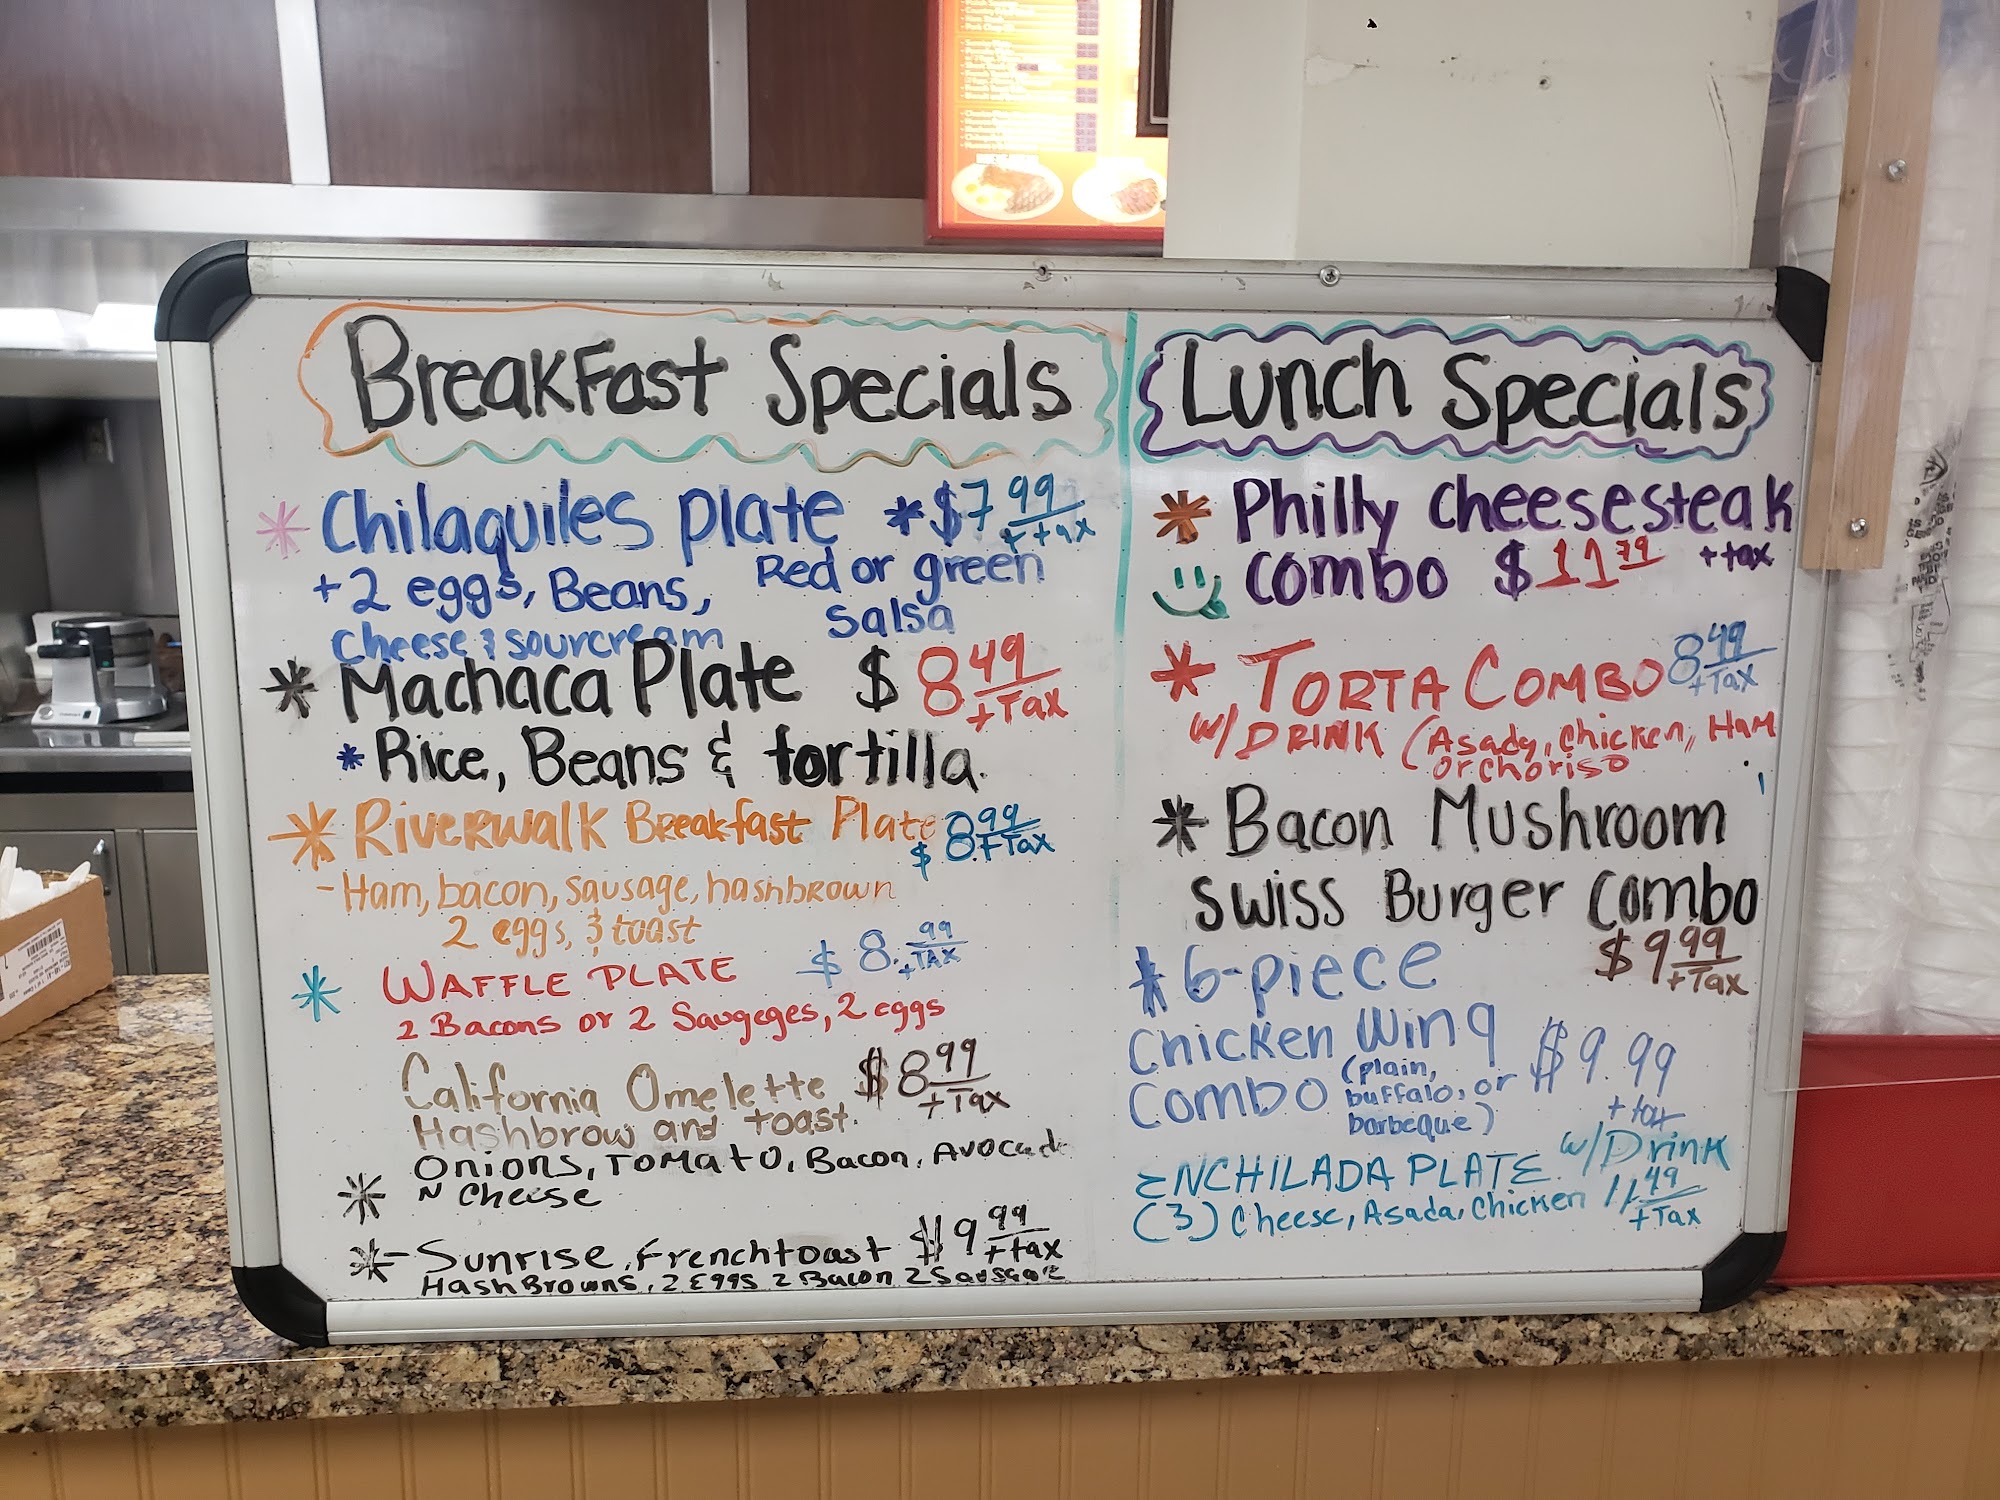 BreakFast Specials
* Chilaquiles plate * $7.99 + tax
+2 eggs, Beans, Red or green
cheese & sourcream salsa
* Machaca Plate $8.49 + Tax
* Rice, Beans & tortilla.
* Riverwalk Breakfast Plate $8.99 + Tax
- Ham, bacon, sausage, hashbrown
2 eggs, & toast
* WAFFLE PLATE $8.99 + TAX
2 Bacons or 2 Saugeges, 2 eggs
California Omelette $8.99 + Tax
Hashbrow and toast.
Onions, Tomato, Bacon, Avocad
* N Cheese
* - Sunrise, Frenchtoast $9.99 + tax
HashBrowns, 2 Eggs 2 Bacon 2 Sausage
Lunch Specials
* Philly cheesesteak
combo $11.79 + tax
* TORTA COMBO 8.49 + Tax
w/DRINK (Asada, chicken, Ham
or choriso
* Bacon Mushroom
swiss Burger combo
$9.99 + Tax
* 6-piece
Chicken Wing
Combo (plain, buffalo, or barbeque) $9.99
+ tax
ENCHILADA PLATE w/Drink
(3) Cheese, Asada, Chicken 11.49 + Tax